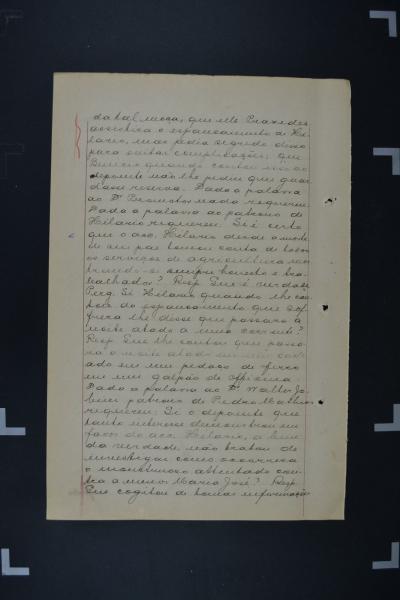 da tal moça, que elle Praxedes
assistira o espancamento de Hi-
lario, mas pedia segredo disso
para evitar complicações; que
quando contou isso ao
depoente não lhe pediu que guar
dasse reserva. Dado a palavra
ao Dr. Promotor nada requereu.
Dado a palavra ao patrono de
Hilario requereu: Si é certo
que o acc. Hilario desde a morte
de seu pae tomou conta de todos
os serviços de agricultura com
portando-se sempre honesto e tra-
balhador? Resp. Que é verdade.
Perg. Si Hilario quando lhe con
tou do espancamento que sof
frera lhe disse que passara a
noite atado a uma corrente?
Resp. Que lhe contou que passa-
ra a noite atado
ado em um pedaço de ferro
em um galpão de officina.
Dado a palavra ao Dr. Walter Jo-
bim patrono de Pedro
requereu: Si o depoente que
tanto interesse demonstrou em
favor do acc. Hilario, a bem
da verdade, não tratou de
investigar como ocorrera
o monstruoso attentado con-
tra a menor Maria José? Resp.
Que cogitou de tomar informações